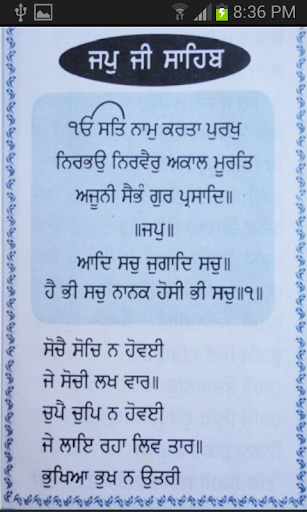 8:36 PM
ਜਪੁ ਜੀ ਸਾਹਿਬ
ੴ ਸਤਿ ਨਾਮੁ ਕਰਤਾ ਪੁਰਖੁ
ਨਿਰਭਉ ਨਿਰਵੈਰੁ ਅਕਾਲ ਮੂਰਤਿ
ਅਜੂਨੀ ਸੈਭੰ ਗੁਰ ਪ੍ਰਸਾਦਿ॥
॥ਜਪੁ॥
ਆਦਿ ਸਚੁ ਜੁਗਾਦਿ ਸਚੁ॥
ਹੈ ਭੀ ਸਚੁ ਨਾਨਕ ਹੋਸੀ ਭੀ ਸਚੁ॥੧॥
ਸੋਚੈ ਸੋਚਿ ਨ ਹੋਵਈ
ਜੇ ਸੋਚੀ ਲਖ ਵਾਰ॥
ਚੁਪੈ ਚੁਪਿ ਨ ਹੋਵਈ
ਜੇ ਲਾਇ ਰਹਾ ਲਿਵ ਤਾਰ॥
ਭੁਖਿਆ ਭੁਖ ਨ ਉਤਰੀ